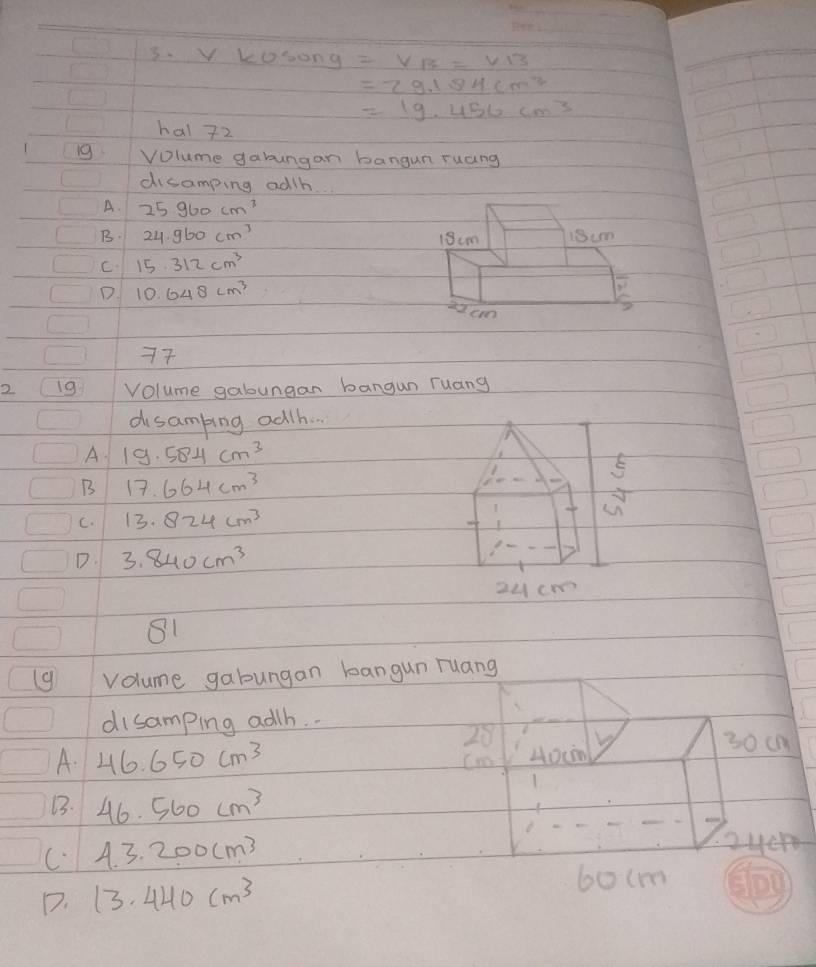 3. V kosong = VB = VB
= 29.184 cm³
= 19.456 cm³
hal 72
1 19. Volume gabungan bangun ruang
disamping adlh...
A. 25.960 cm³
B. 24.960 cm³
C. 15.312 cm³
D. 10.648 cm³
18cm 18cm
22cm
77
2 19. Volume gabungan bangun ruang
disamping adlh...
A. 19.584 cm³
B 17.664 cm³
C. 13.824 cm³
D. 3.840 cm³
54 cm
24 cm
81
19 Volume gabungan bangun ruang
disamping adlh..
A. 46.650 cm³
B. 46.560 cm³
C. 43.200 cm³
D. 13.440 cm³
28 cm
40cm
30 cm
24cm
60 cm
SIDU